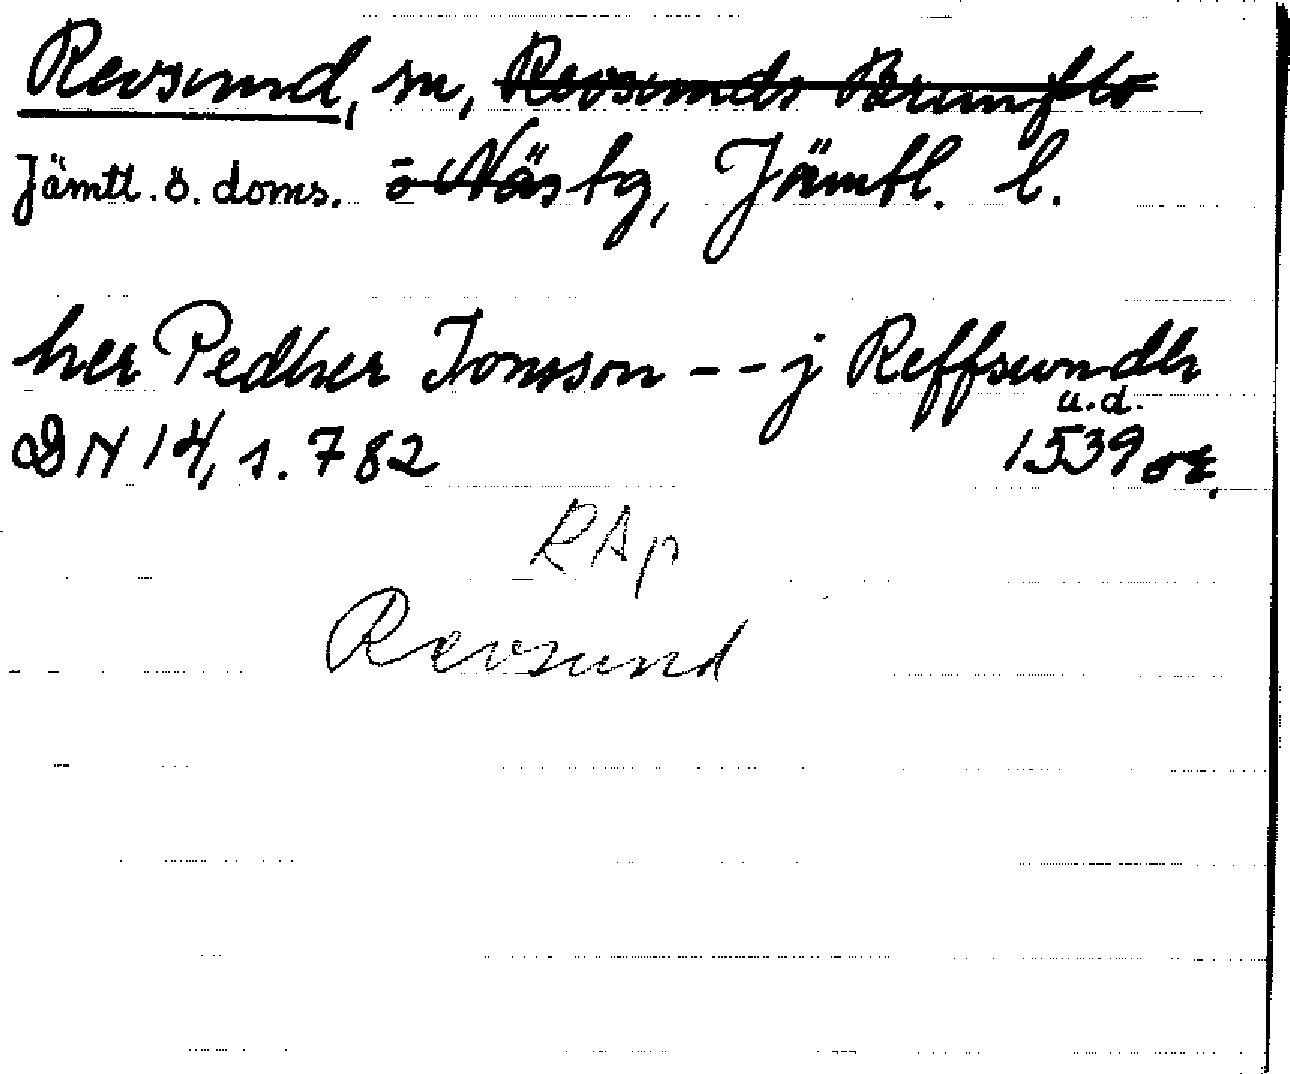 Revsund, sn, Revsunds Brunflo
Jämtl. ö. doms. o Näs tg, Jämtl. l.
her Pedher Jonsson -- j Reffswndh
u.d.
DN 14, s. 782 1539 or.
RAp
Revsund